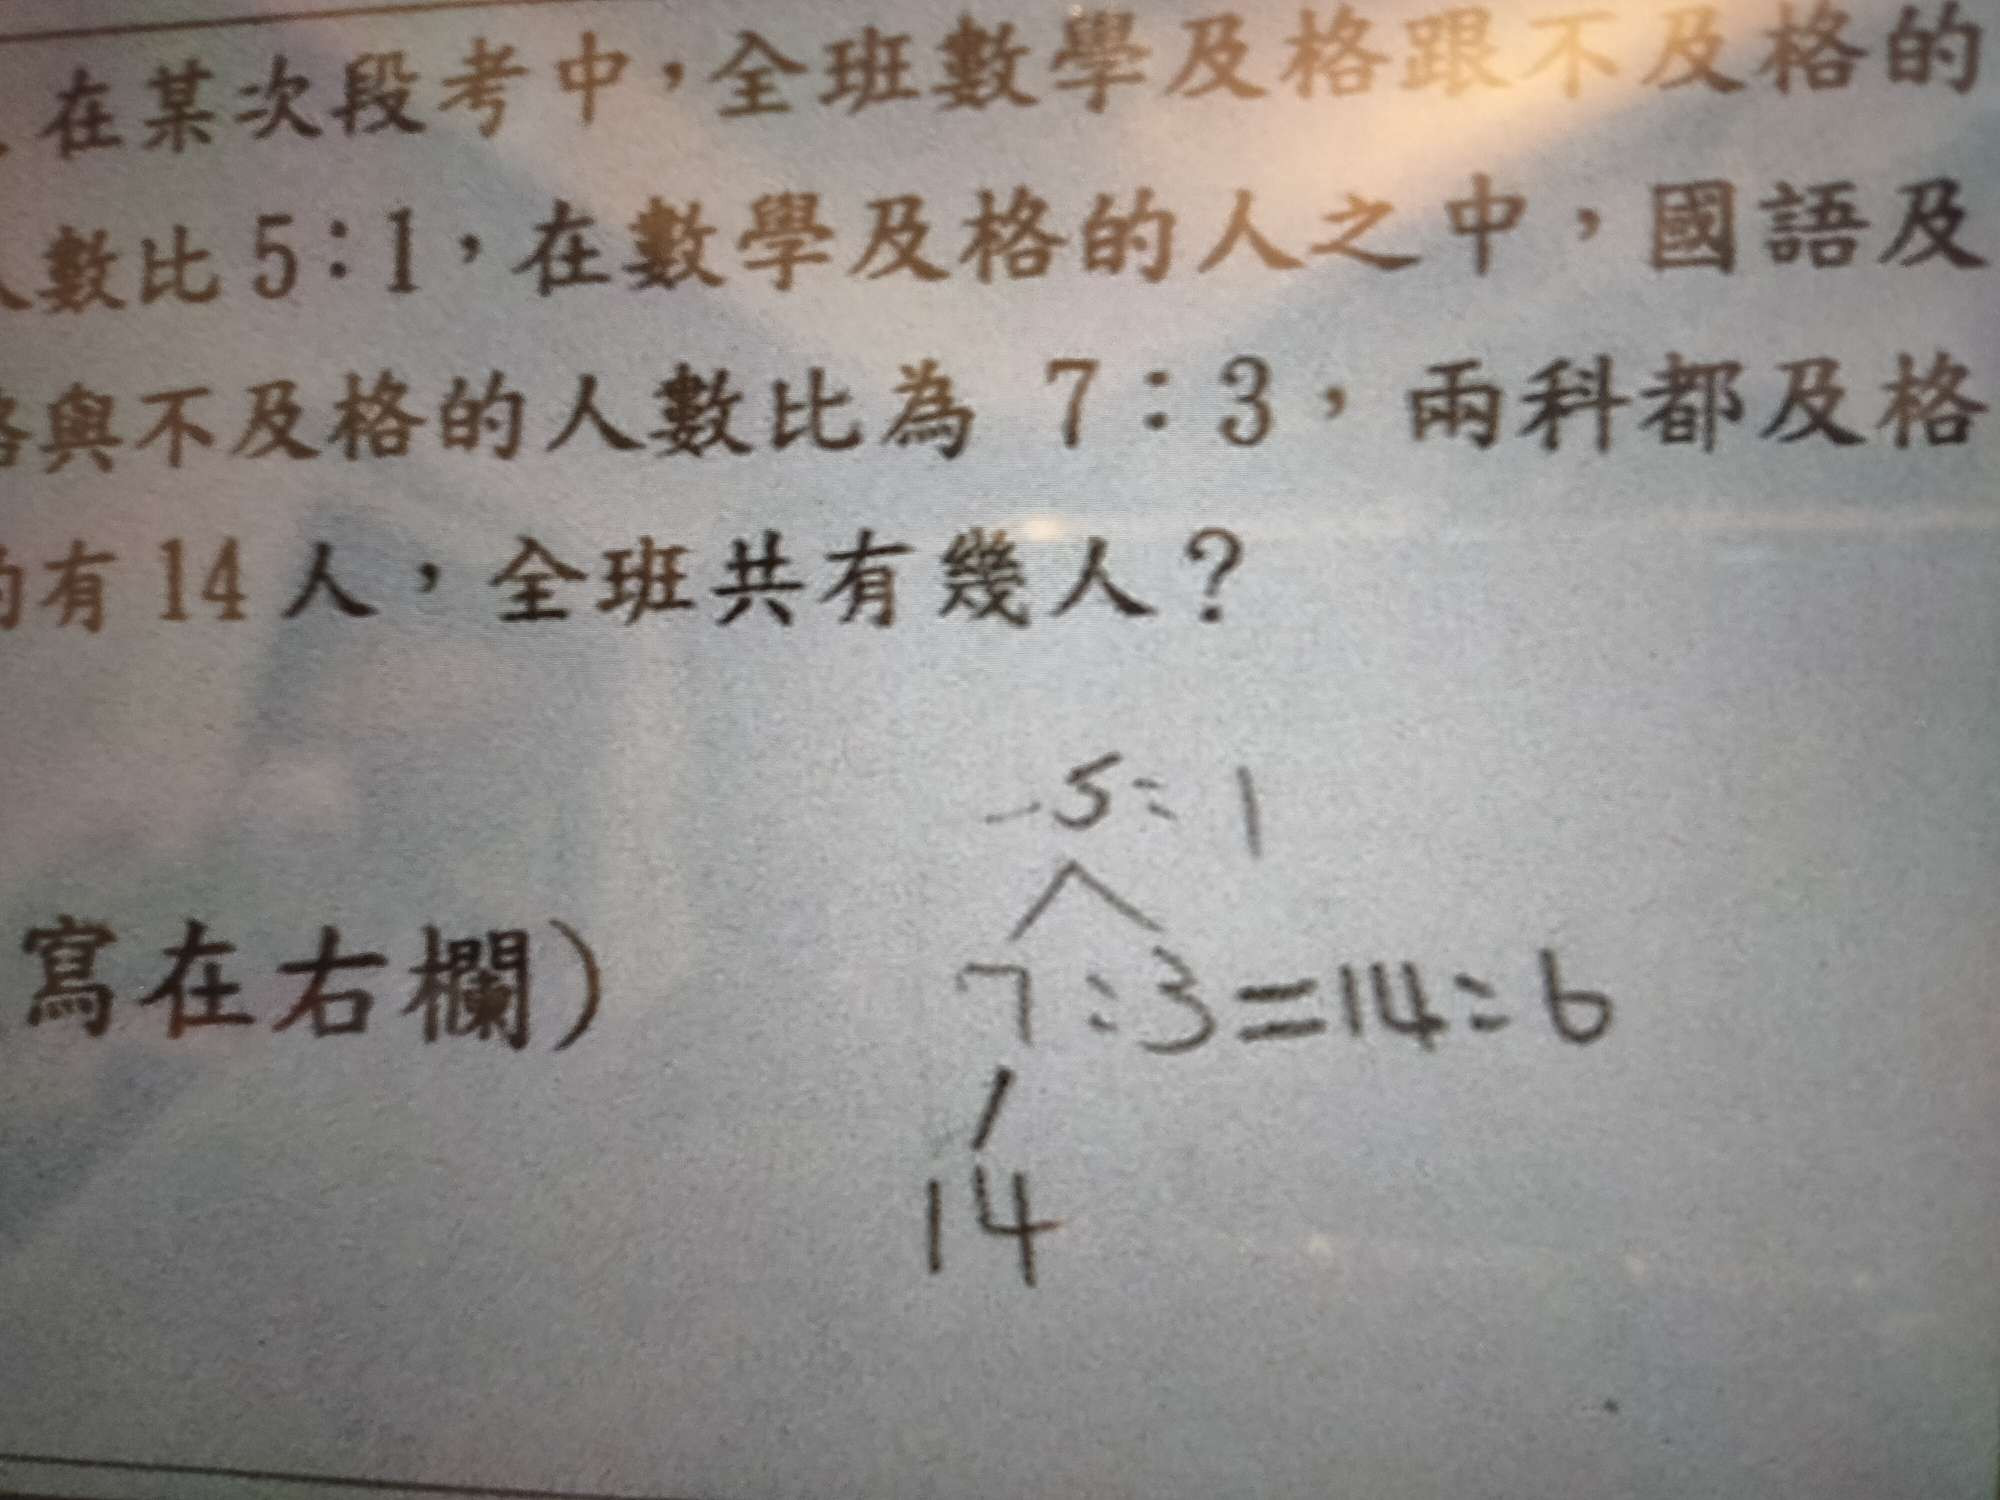 在某次段考中，全班數學及格跟不及格的
人數比5:1，在數學及格的人之中，國語及
格與不及格的人數比為 7:3，兩科都及格
的有14人，全班共有幾人？
5:1
寫在右欄)
7:3=14:6
14